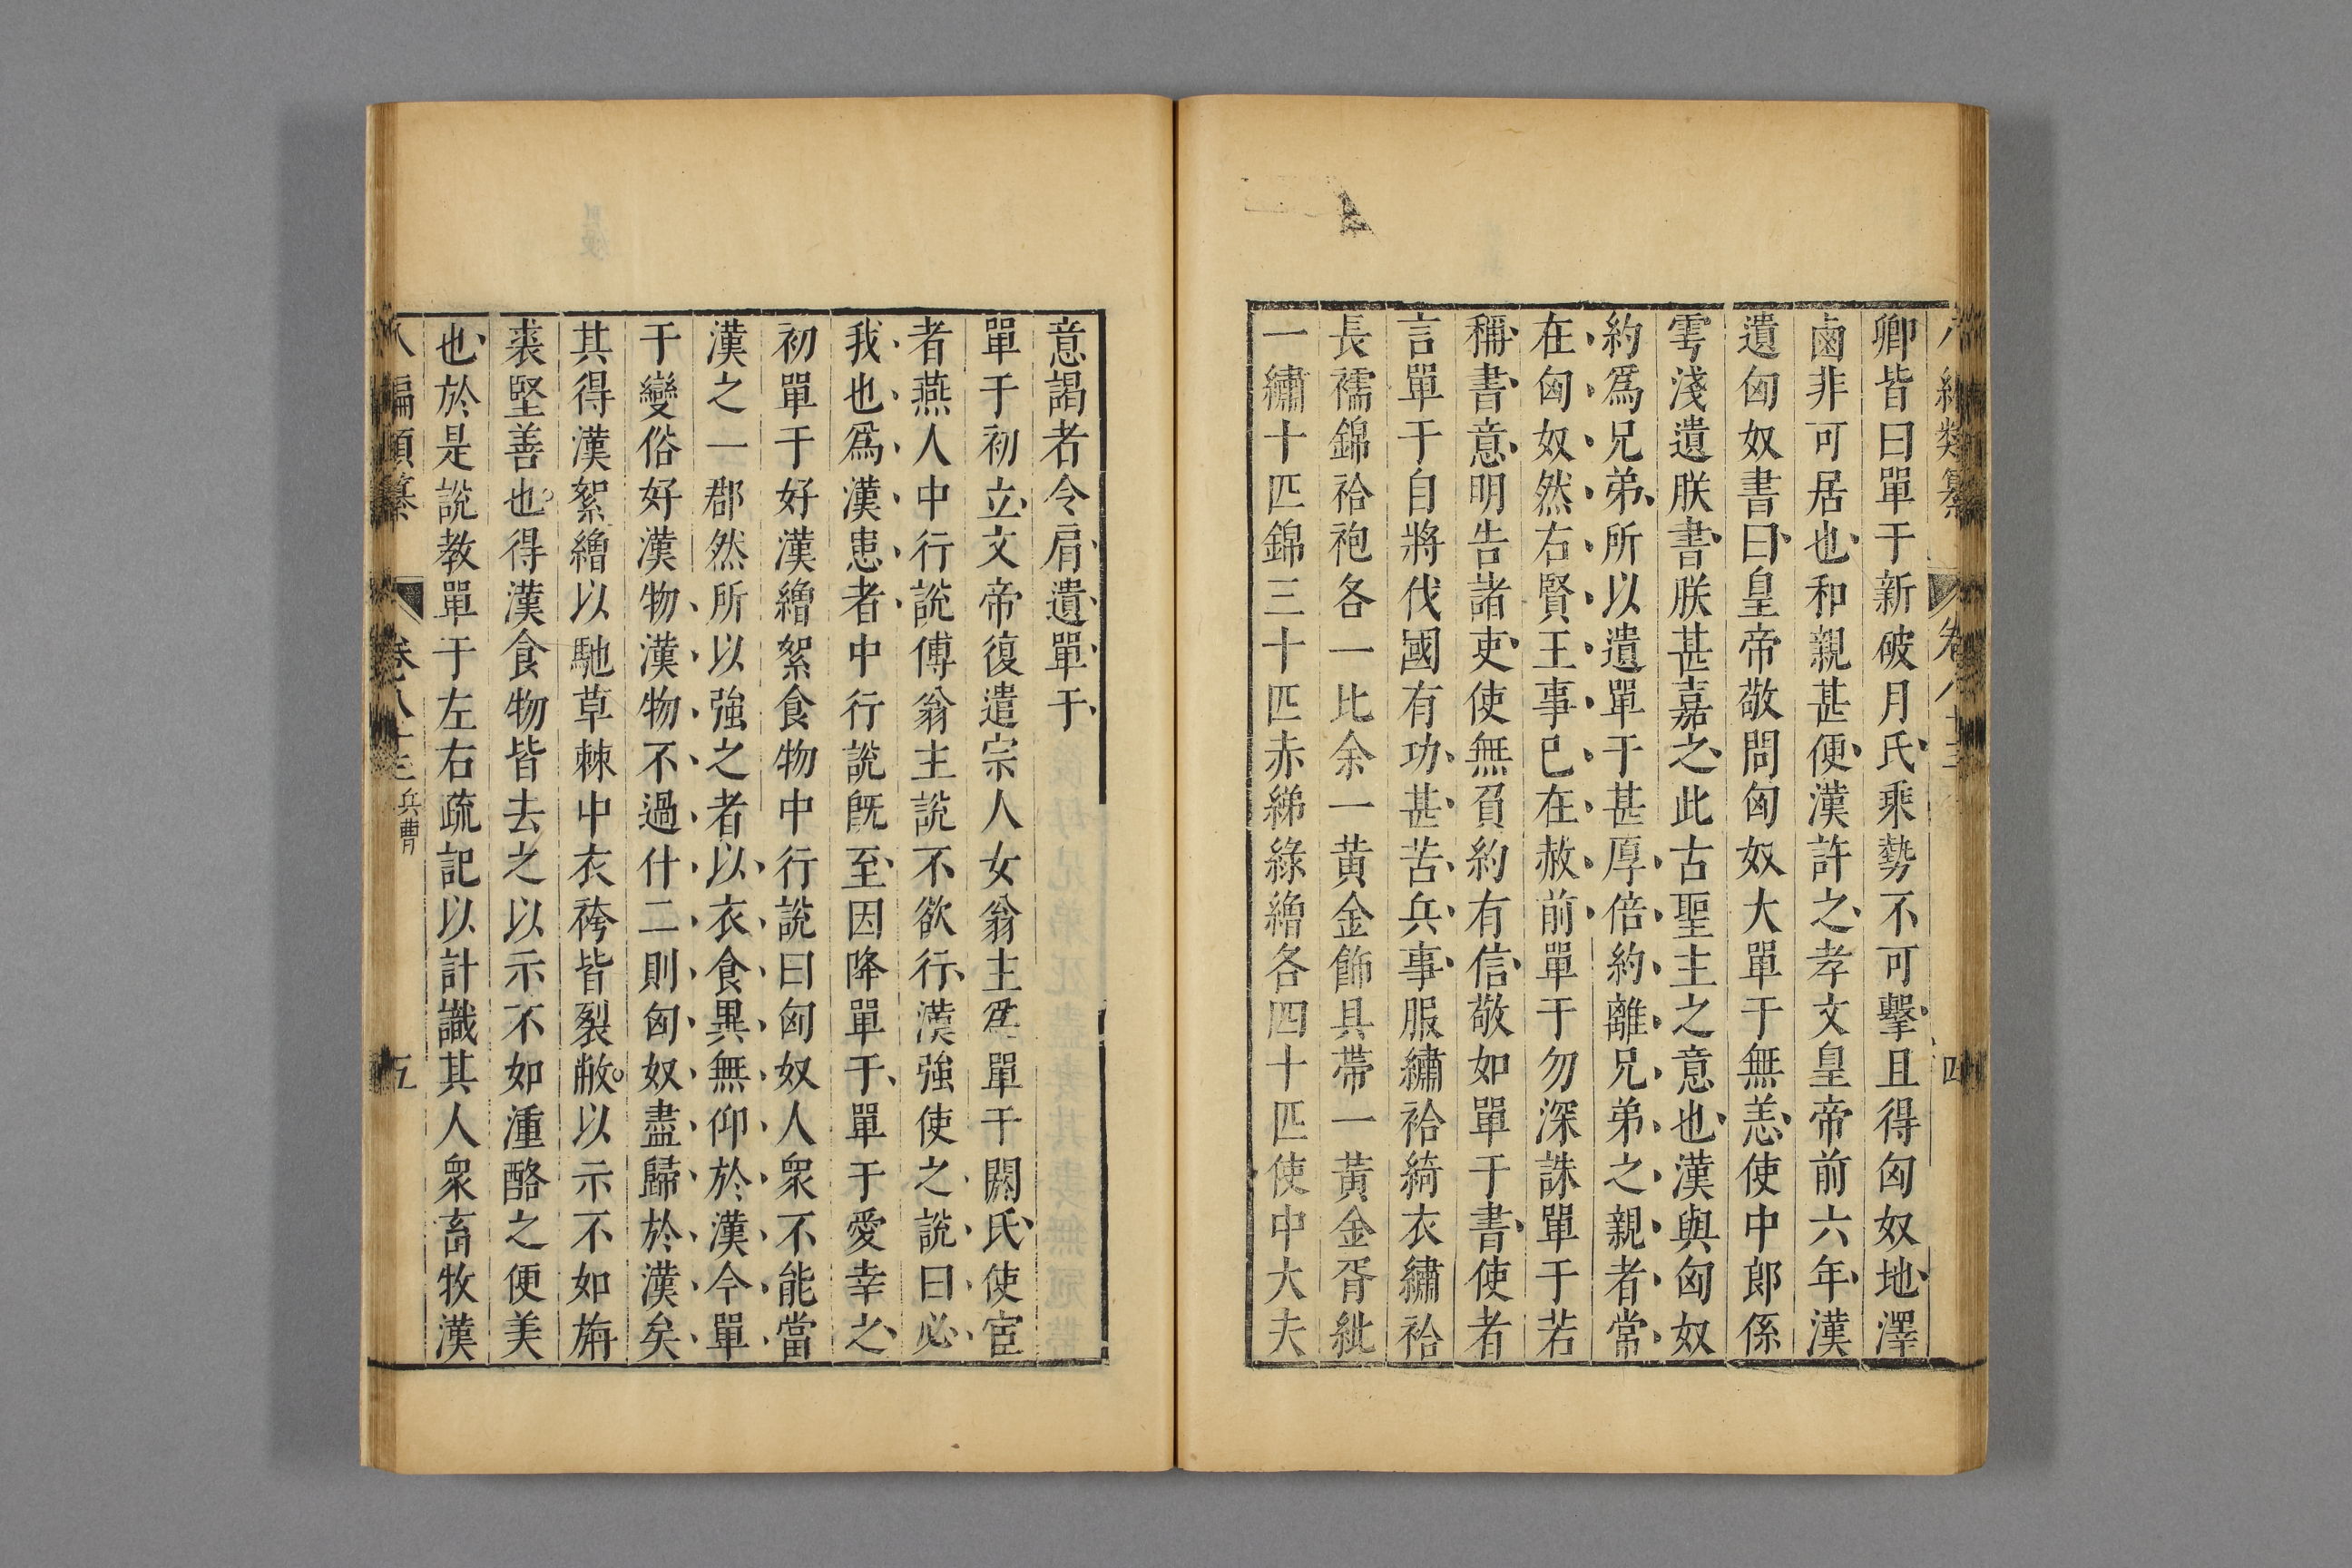 卿皆曰單于新破月氏乘勢不可擊且得匈奴地澤
鹵非可居也和親甚便漢許之孝文皇帝前六年漢
遺匈奴書曰皇帝敬問匈奴大單于無恙使中郎係
雩淺遺朕書朕甚嘉之此古聖主之意也漢與匈奴
約爲兄弟所以遺單于甚厚倍約離兄弟之親者常
在匈奴然右賢王事已在赦前單于勿深誅單于若
稱書意明告諸吏使無負約有信敬如單于書使者
言單于自將伐國有功甚苦兵事服繡袷綺衣繡袷
長襦錦袷袍各一比余一黄金飾具帶一黄金胥紕
一繡十匹錦三十匹赤綈綠繒各四十匹使中大夫
意謁者令肩遺單于
單于初立文帝復遣宗人女翁主爲單于閼氏使宦
者燕人中行說傅翁主說不欲行漢強使之說曰必
我也爲漢患者中行說旣至因降單于單于愛幸之
初單于好漢繒絮食物中行說曰匈奴人衆不能當
漢之一郡然所以強之者以衣食異無仰於漢今單
于變俗好漢物漢物不過什二則匈奴盡歸於漢矣
其得漢絮繒以馳草棘中衣袴皆裂敝以示不如旃
裘堅善也得漢食物皆去之以示不如湩酪之便美
也於是說教單于左右疏記以計識其人衆畜牧漢
八編類纂 卷八十三 兵曹 五